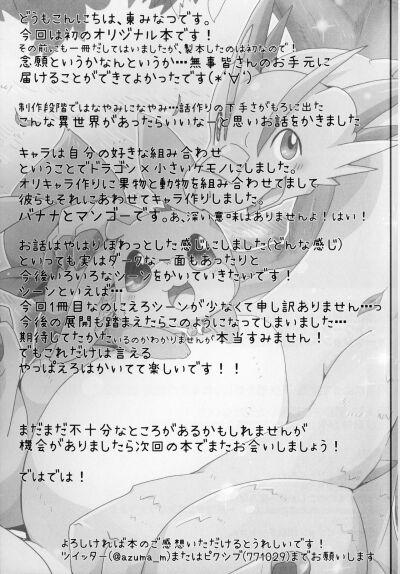 どうもこんにちは、東みなつです。
今回は初のオリジナル本です！
その前にも一冊だしてはいましたが、製本したのは初なので！
念願というかなんというか…無事皆さんのお手元に
届けることができてよかったです(*'∀')
制作段階ではなやみになやみ…話作りの下手さがもろに出た
こんな異世界があったらいいなーと思いお話をかきました
キャラは自分の好きな組み合わせ
ということでドラゴン×小さいケモノにしました。
オリキャラ作りに果物と動物を組み合わせてまして
彼らもそれにあわせてキャラ作りしました。
バナナとマンゴーです。あ、深い意味はありませんよ！はい！
お話はやはりぽわっとした感じにしました(どんな感じ)
といっても実はダークな一面もあったりと
今後いろいろなシーンをかいていきたいです！
シーンといえば…
今回1冊目なのにえろシーンが少なくて申し訳ありません…っ
今後の展開も踏まえたらこのようになってしまいました…
期待してたかた(いるのかわかりませんが)本当すみません！
でもこれだけは言える
やっぱえろはかいてて楽しいです！！
まだまだ不十分なところがあるかもしれませんが
機会がありましたら次回の本でまたお会いしましょう！
ではでは！
よろしければ本のご感想いただけるとうれしいです！
ツイッター(@azuma_m)またはピクシブ(771029)までお願いします